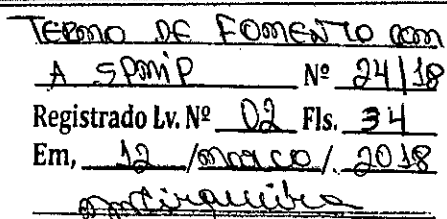 TERMO DE FOMENTO COM
A SPMIP Nº 24/18
Registrado Lv. Nº 02 Fls. 34
Em, 12 /março/ 2018